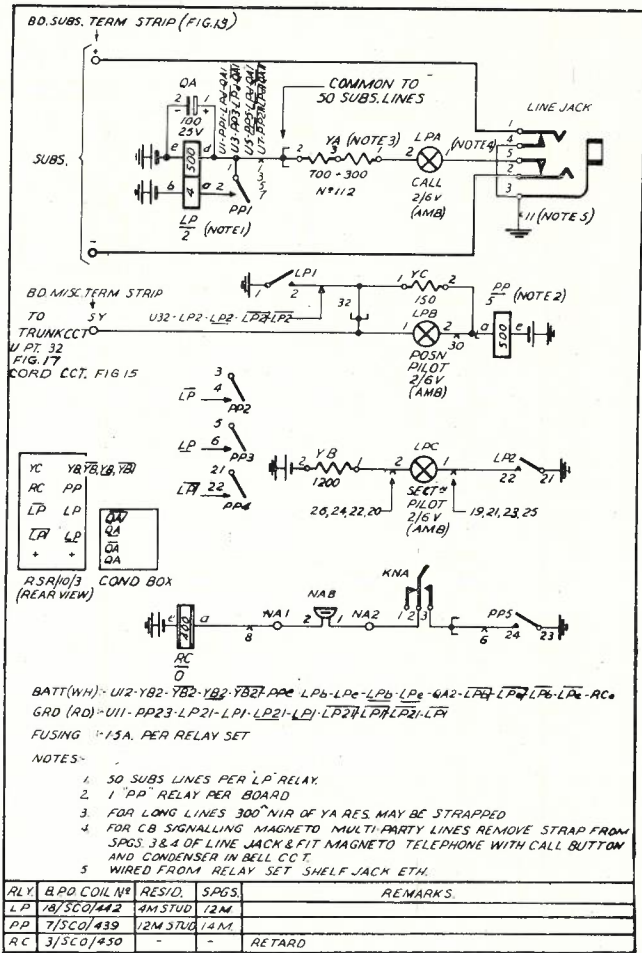 BD. SUBS. TERM STRIP (FIG.13)
+
QA
2 1
- +
100
25V
COMMON TO
50 SUBS. LINES
LINE JACK
1
4
5
2
3
(NOTE4)
SUBS.
e 500 d
b 4 a 2
PP1
1
3
5
7
LP
2
(NOTE1)
2 YA (NOTE 3)
700 - 300
Nº 112
LPA
2 1
CALL
2/6 V
(AMB)
11 (NOTE 5)
-
BD. MISC. TERM STRIP
TO 5Y
TRUNK CCT
U PT. 32
FIG. 17
CORD CCT. FIG 15
LP1
1 2
U32-LP2-LP2-LP2-LP2
32
YC
1 2
150
LPB
1 2
30
POSN
PILOT
2/6 V
(AMB)
PP (NOTE 2)
5
a 500 e
3
LP 4
PP2
5
LP 6
PP3
21
LP 22
PP4
YB
2 1
1200
LPC
2 1
SECTN
PILOT
2/6 V
(AMB)
LP2
22 21
26,24,22,20
19,21,23,25
YC YB,YB,YB,YB
RC PP
LP LP
LP LP
+ +
RSR/10/3
(REAR VIEW)
QA
QA
QA
QA
COND BOX
e 100 a
RC
0
8
NA1
NAB
2 1
NA2
KNA
1 2 3
6
PP5
24 23
BATT(WH):-U12-YB2-YB2-YB2-YB2-PPe-LPb-LPe-LPb-LPe-QA2-LPb-LPe-LPb-LPe-RCe
GRD (RD):-U11-PP23-LP21-LP1-LP21-LP1-LP21-LP1-LP21-LP1
FUSING :-1·5A. PER RELAY SET
NOTES:-
1. 50 SUBS LINES PER "LP" RELAY.
2. 1 "PP" RELAY PER BOARD
3. FOR LONG LINES 300^ NIR OF YA RES. MAY BE STRAPPED
4. FOR CB SIGNALLING MAGNETO MULTI-PARTY LINES REMOVE STRAP FROM
SPGS. 3 & 4 OF LINE JACK & FIT MAGNETO TELEPHONE WITH CALL BUTTON
AND CONDENSER IN BELL CCT.
5 WIRED FROM RELAY SET SHELF JACK ETH.
RLY. B.P.O. COIL Nº RESID. SPGS. REMARKS.
LP 18/SCO/442 4M STUD 12M
PP 7/SCO/439 12M STUD 14M.
RC 3/SCO/450 - - RETARD